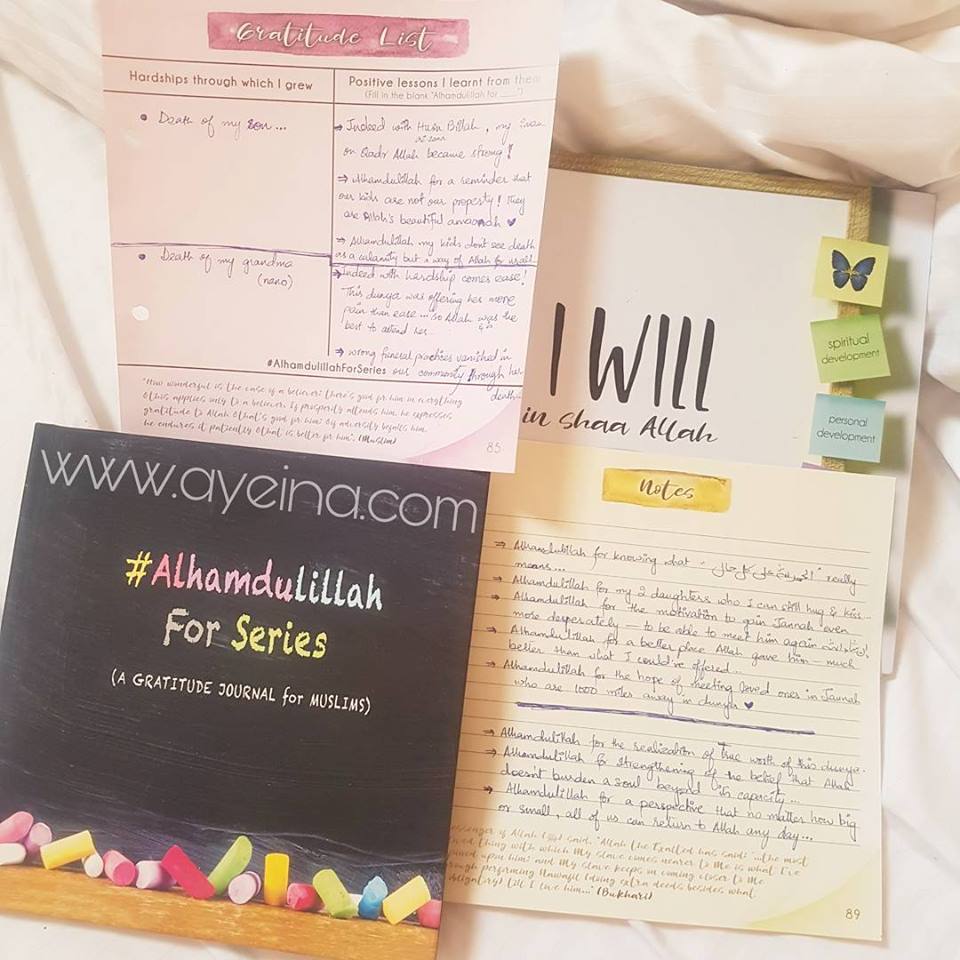 Gratitude List
Hardships through which I grew
Positive lessons I learnt from them
(Fill in the blank "Alhamdulillah for ____")
• Death of my son...
⇒ Indeed with Husn Billah, my iman
on Qadr Allah became strong!
⇒ Alhamdulillah for a reminder that
our kids are not our property! They
are Allah's beautiful amaanah ♥
⇒ Alhamdulillah my kids don't see death
as a calamity but a way of Allah for us all...
• Death of my grandma
(nano)
⇒ Indeed with hardship comes ease!
This dunya was offering her more
pain than ease... so Allah was the
best to attend her
⇒ wrong funeral practices vanished in
our community through her
death...
#AlhamdulillahForSeries
"How wonderful is the case of a believer; there's good for him in everything
& this applies only to a believer. If prosperity attends him, he expresses
gratitude to Allah & that's good for him; & if adversity befalls him,
he endures it patiently & that is better for him". (Muslim)
85
I WIll
in shaa Allah
spiritual
development
personal
development
www.ayeina.com
#Alhamdulillah
For Series
(A GRATITUDE JOURNAL for MUSLIMS)
Notes
⇒ Alhamdulillah for knowing what "الحمد لله على كل حال" really
means...
⇒ Alhamdulillah for my 2 daughters who I can still hug & kiss...
⇒ Alhamdulillah for the motivation to gain Jannah even
more desperately — to be able to meet him again
⇒ Alhamdulillah for a better place Allah gave him — much
better than what I could've offered...
⇒ Alhamdulillah for the hope of meeting loved ones in Jannah
who are 1000 miles away in dunya ♥
⇒ Alhamdulillah for the realization of true worth of this dunya.
⇒ Alhamdulillah for strengthening of the belief that Allah
doesn't burden a soul beyond its capacity...
⇒ Alhamdulillah for a perspective that no matter how big
or small, all of us can return to Allah any day...
of Allah said, "Allah the Exalted has said: "...the most
thing with which My slave comes nearer to Me is what I've
upon him; and My slave keeps on coming closer to Me
through performing Nawafil (doing extra deeds besides what
obligatory) till I love him..." (Bukhari)
89